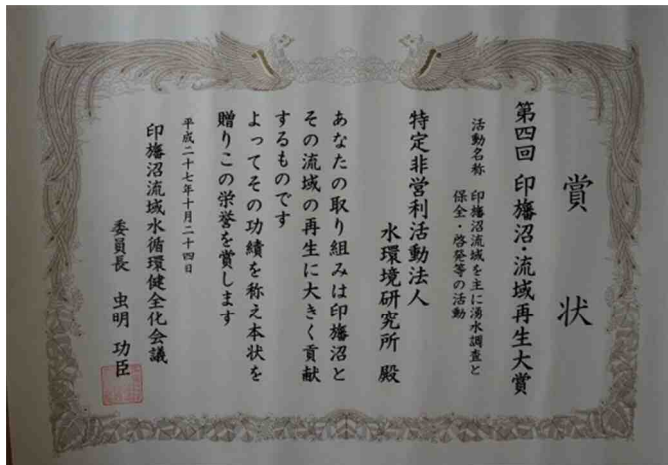 賞状
第四回 印旛沼・流域再生大賞
活動名称 印旛沼流域を主に湧水調査と
保全・啓発等の活動
特定非営利活動法人
水環境研究所 殿
あなたの取り組みは印旛沼と
その流域の再生に大きく貢献
するものです
よってその功績を称え本状を
贈りこの栄誉を賞します
平成二十七年十月二十四日
印旛沼流域水循環健全化会議
委員長 虫明 功臣